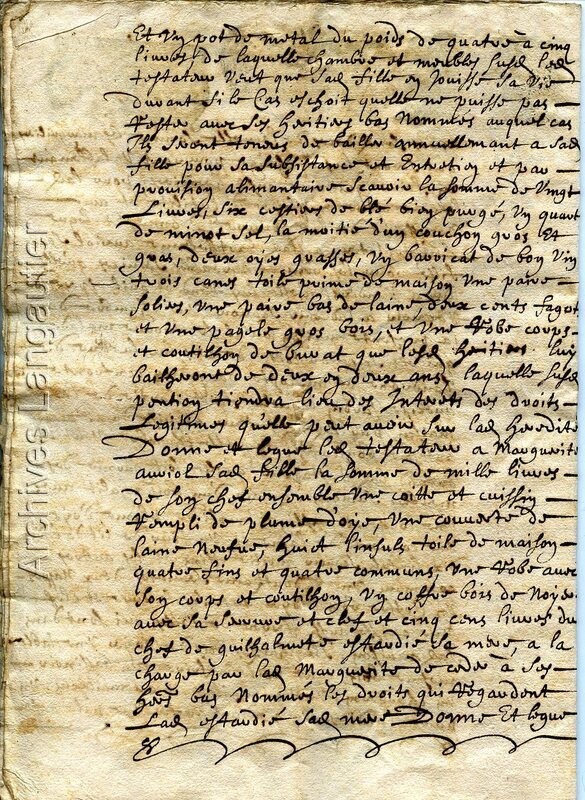 Et Un pot de metal du poids de quatre à cinq
livres, de laquelle chambre et meubles susd led
testateur veut que sad fille en Jouisse sa vie
durant si le Cas eschoit quelle ne puisse pas
Rester avec ses heritiers bas Nommes auquel cas
Ils seront tenus de bailler annuellement a sad
fille pour sa subsistance et Entretien et par
provision alimantaire scavoir la somme de vingt
Livres, six cestiers de blé bien purgé, Un quart
de minot sel, la moitie d'un couchon gros Et
gras, deux oyes grasses, Un barricat de bon vin
trois canes toile prime de maison Une paire
soliers, Une paire bas de laine, deux cents fagots
et Une pagele gros bois, et Une Robe corps
et coutilhon de burat que lesd heritiers luy
bailheront de deux en deux ans, laquelle susd
pention tiendra lieu des Interets des droits
Legitimes qu'elle peut avoir sur lad heredité
Donne et legue led testateur a Marguerite
auriol sad fille la somme de mille livres
de son chef ensemble Une coitte et cuissin
Rempli de plume d'oye, Une couverte de
laine Neufve, huict linsuls toile de maison
quatre fins et quatre communs, Une Robe avec
son corps et coutilhon, Un coffre bois de Noyer
avec sa serrure et clef et cinq cens livres du
chef de guilhalmete estardié sa mere, a la
charge par lad Marguerite de ceder à ses
hers bas Nommes les droits qui Regardent
Lad estardié sad mere Donne Et legue
Archives Langautier